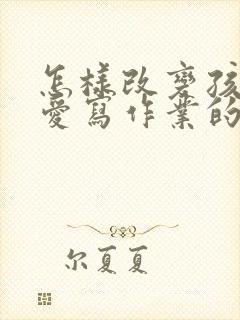 怎樣改變孩
愛寫作業的
尔夏夏